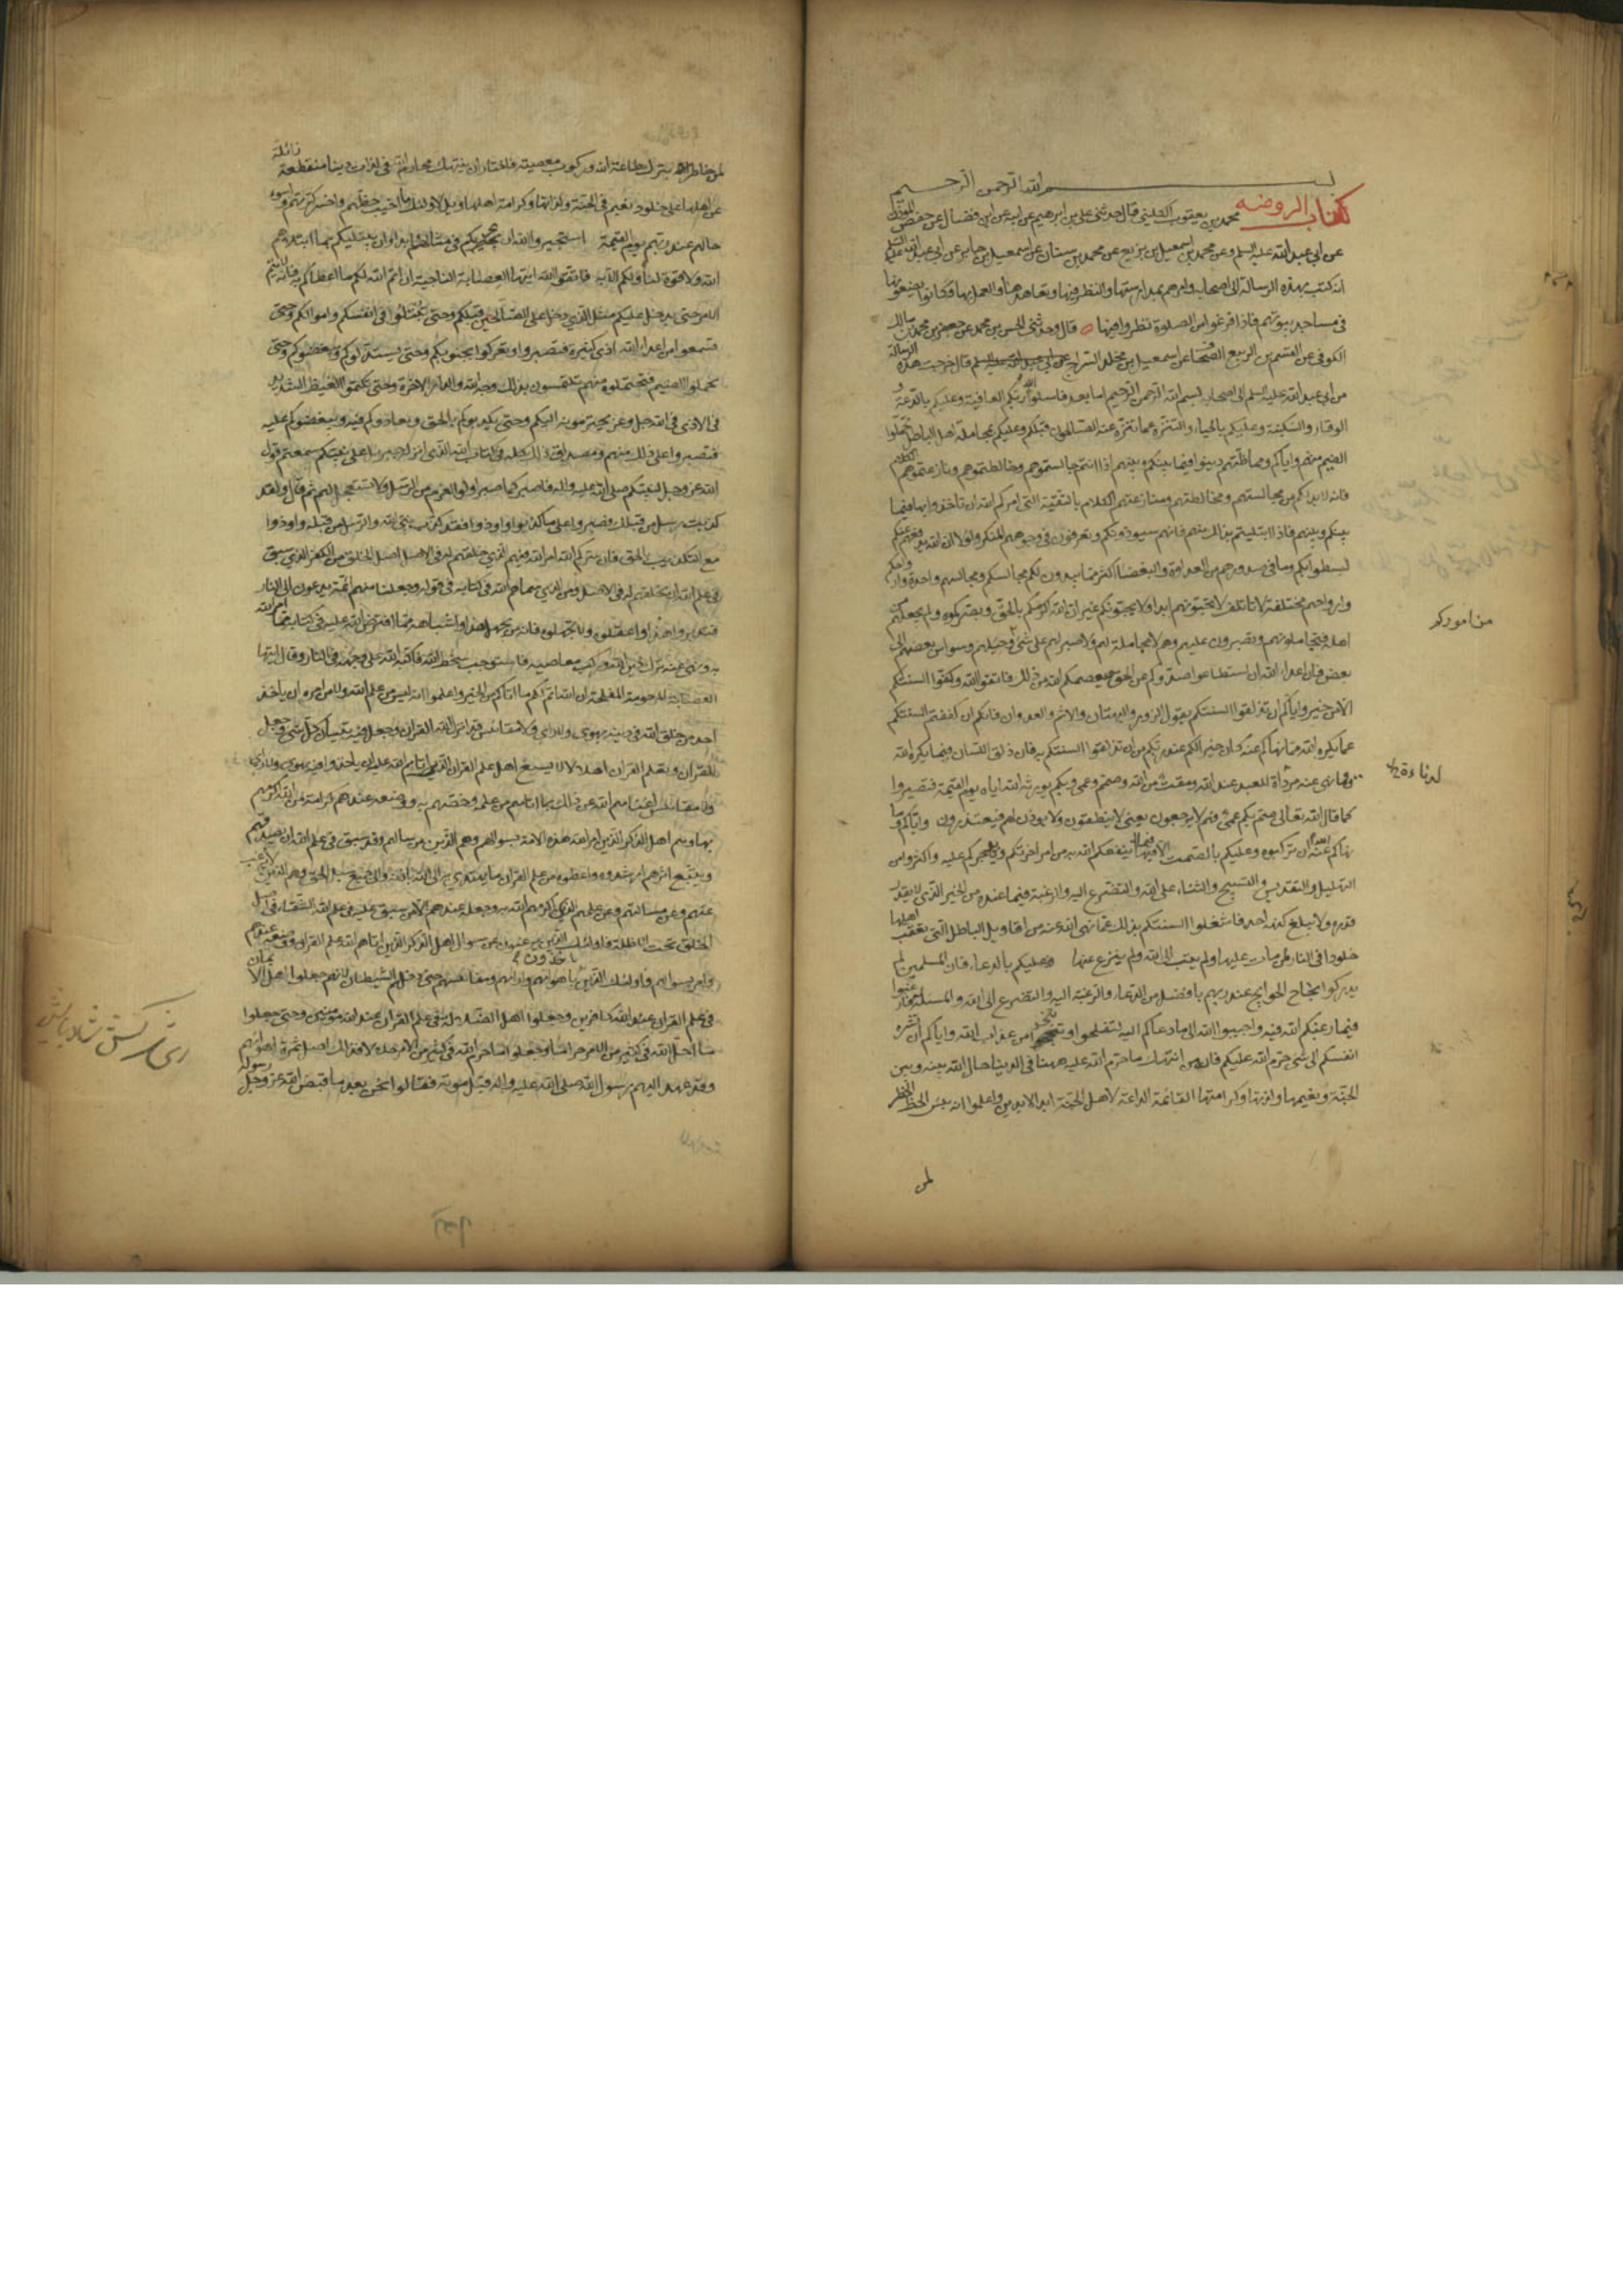 بسم الله الرحمن الرحيم
كتاب الروضه
محمد بن يعقوب الكليني قال حدثني علي بن ابرهيم عن ابيه عن ابن فضال عن حفص المؤذن
عن ابي عبد الله عليه السلم وعن محمد بن اسمعيل بن بزيع عن محمد بن سنان عن اسمعيل بن جابر عن ابي عبد الله عليه السلم
انه كتب بهذه الرسالة الى اصحابه وامرهم بمدارستها والنظر فيها وتعاهدها والعمل بها فكانوا يضعونها
في مساجد بيوتهم فاذا فرغوا من الصلوة نظروا فيها قال وحدثني الحسن بن محمد عن جعفر بن محمد بن مالك
الكوفي عن القسم بن الربيع الصحاف عن اسمعيل بن مخلد السراج عن ابي عبد الله عليه السلم قال خرجت هذه الرسالة
من ابي عبد الله عليه السلم الى اصحابه بسم الله الرحمن الرحيم اما بعد فاسئلوا الله ربكم العافية وعليكم بالدعة
والوقار والسكينة وعليكم بالحياء والتنزه عما تنزه عنه الصالحون قبلكم وعليكم بمجاملة اهل الباطل تحملوا
الضيم منهم واياكم ومماظتهم دينوا فيما بينكم وبينهم اذا انتم جالستموهم وخالطتموهم ونازعتموهم الكلام
فانه لا بد لكم من مجالستهم ومخالطتهم ومنازعتهم الكلام بالتقية التي امركم الله ان تاخذوا بها فيما
بينكم وبينهم فاذا ابتليتم بذلك منهم فانهم سيوذونكم وتعرفون في وجوههم المنكر ولولا ان الله يدفعهم عنكم
لسطوا بكم وما في صدورهم من العداوة والبغضا اكثر مما يبدون لكم مجالسكم ومجالسهم واحدة وارواحكم
وارواحهم مختلفة لا تاتلف لا تحبونهم ابدا ولا يحبونكم غير ان الله اكرمكم بالحق وبصركموه ولم يجعلهم من
اهله فتجاملونهم وتصبرون عليهم وهم لا مجاملة لهم ولا صبر لهم على شي وحيلهم وسواس بعضهم الى
بعض فان اعداء الله ان استطاعوا صدوكم عن الحق يعصمكم الله من ذلك فاتقوا الله وكفوا السنتكم
الا من خير واياكم ان تذلقوا السنتكم بقول الزور والبهتان والاثم والعدوان فانكم ان كففتم السنتكم
عما يكره الله مما نهاكم عنه كان خيرا لكم عند ربكم من ان تذلقوا السنتكم به فان ذلق اللسان فيما يكره الله
وما نهى عنه مرداة للعبد عند الله ومقت من الله وصم وعمى وبكم يورثه الله اياه يوم القيمة فتصيروا
كما قال الله تعالى صم بكم عمي فهم لا يرجعون يعني لا ينطقون ولا يوذن لهم فيعتذرون واياكم وما
نهاكم الله عنه ان تركبوه وعليكم بالصمت الا فيما ينفعكم الله به من امر اخرتكم وياجركم عليه واكثروا من
التهليل والتقديس والتسبيح والثناء على الله والتضرع اليه والرغبة فيما عنده من الخير الذي لا يقدر
قدره ولا يبلغ كنهه احد فاشغلوا السنتكم بذلك عما نهى الله عنه من اقاويل الباطل التي تعقب اهلها
خلودا في النار من مات عليها ولم يتب الى الله ولم ينزع عنها وعليكم بالدعاء فان المسلمين لم
يدركوا نجاح الحوايج عند ربهم بافضل من الدعاء والرغبة اليه والتضرع الى الله والمسئلة فارغبوا
فيما رغبكم الله فيه واجيبوا الله الى ما دعاكم اليه لتفلحوا وتنجوا من عذاب الله واياكم ان تشره
انفسكم الى شي حرم الله عليكم فان من انتهك ما حرم الله عليه ههنا في الدنيا حال الله بينه وبين
الجنة ونعيمها ولذتها وكرامتها القائمة الدائمة لاهل الجنة ابد الابدين واعلموا انه بئس الحظ الخطر
لمن
لمن خاطر الله بترك طاعة الله وركوب معصيته فاختار ان ينتهك محارم الله في لذات دنيا منقطعة زائلة
عن اهلها على خلود نعيم في الجنة ولذاتها وكرامة اهلها ويل لاولئك ما اخيب حظهم واخسر كرتهم واسوء
حالهم عند ربهم يوم القيمة استجيروا الله ان يجيركم في مثالهم ابدا وان يبتليكم بما ابتلاهم
الله ولا قوة لنا ولكم الا به فاتقوا الله ايتها العصابة الناجية ان اتم الله لكم ما اعطاكم به فانه لا يتم
الامر حتى يدخل عليكم مثل الذي دخل على الصالحين قبلكم وحتى تبتلوا في انفسكم واموالكم وحتى
تسمعوا من اعداء الله اذى كثيرا فتصبروا وتعركوا بجنوبكم وحتى يستذلوكم ويبغضوكم وحتى
يحملوا الضيم فتحملوه منهم تلتمسون بذلك وجه الله والدار الاخرة وحتى تكظموا الغيظ الشديد
في الاذى في الله جل وعز يجترمونه اليكم وحتى يكذبوكم بالحق ويعادوكم فيه ويبغضوكم عليه
فتصبروا على ذلك منهم ومصداق ذلك كله في كتاب الله الذي انزله جبرئيل على نبيكم سمعتم قول
الله عز وجل لنبيكم صلى الله عليه واله فاصبر كما صبر اولوا العزم من الرسل ولا تستعجل لهم ثم قال ولقد
كذبت رسل من قبلك فصبروا على ما كذبوا واوذوا فقد كذب نبي الله والرسل من قبله واوذوا
مع التكذيب بالحق فان سركم امر الله فيهم الذي خلقهم له في الاصل اصل الخلق من الكفر الذي سبق
في علم الله ان يخلقهم له في الاصل ومن الذين سماهم الله في كتابه في قوله وجعلنا منهم ائمة يدعون الى النار
فتدبروا هذا واعقلوه ولا تجهلوه فانه من يجهل هذا واشباهه مما افترض الله عليه في كتابه مما امر الله
به ونهى عنه ترك دين الله وركب معاصيه فاستوجب سخط الله فاكبه الله على وجهه في النار وقال ايتها
العصابة المرحومة المفلحة ان الله اتم لكم ما اتاكم من الخير واعلموا انه ليس من علم الله ولا من امره ان ياخذ
احد من خلق الله في دينه بهوى ولا راي ولا مقائيس قد انزل الله القران وجعل فيه تبيان كل شي وجعل
للقران وتعلم القران اهلا لا يسع اهل علم القران الذين اتاهم الله علمه ان ياخذوا فيه بهوى ولا راي
ولا مقائيس اغناهم الله عن ذلك بما اتاهم من علمه وخصهم به ووضعه عندهم كرامة من الله اكرمهم
بها وهم اهل الذكر الذين امر الله هذه الامة بسوالهم وهم الذين من سالهم وقد سبق في علم الله ان يصدقهم
ويتبع اثرهم ارشدوه واعطوه من علم القران ما يهتدي به الى الله باذنه والى جميع سبل الحق وهم الذين لا يرغب
عنهم وعن مسالتهم وعن علمهم الذي اكرمهم الله به وجعله عندهم الا من سبق عليه في علم الله الشقاء في اصل
الخلق تحت الاظلة فاولئك الذين يرغبون عن سوال اهل الذكر الذين اتاهم الله علم القران ووضعه عندهم
وامر بسوالهم واولئك الذين ياخذون باهوائهم وارائهم ومقائيسهم حتى دخلهم الشيطان لانهم جعلوا اهل الايمان
في علم القران عند الله كافرين وجعلوا اهل الضلالة في علم القران عند الله مؤمنين وحتى جعلوا
ما احل الله في كثير من الامر حراما وجعلوا ما حرم الله في كثير من الامر حلالا فذلك اصل ثمرة اهوائهم
وقد عهد اليهم رسول الله صلى الله عليه واله قبل موته فقالوا نحن بعد ما قبض الله عز وجل رسوله
من اموركم